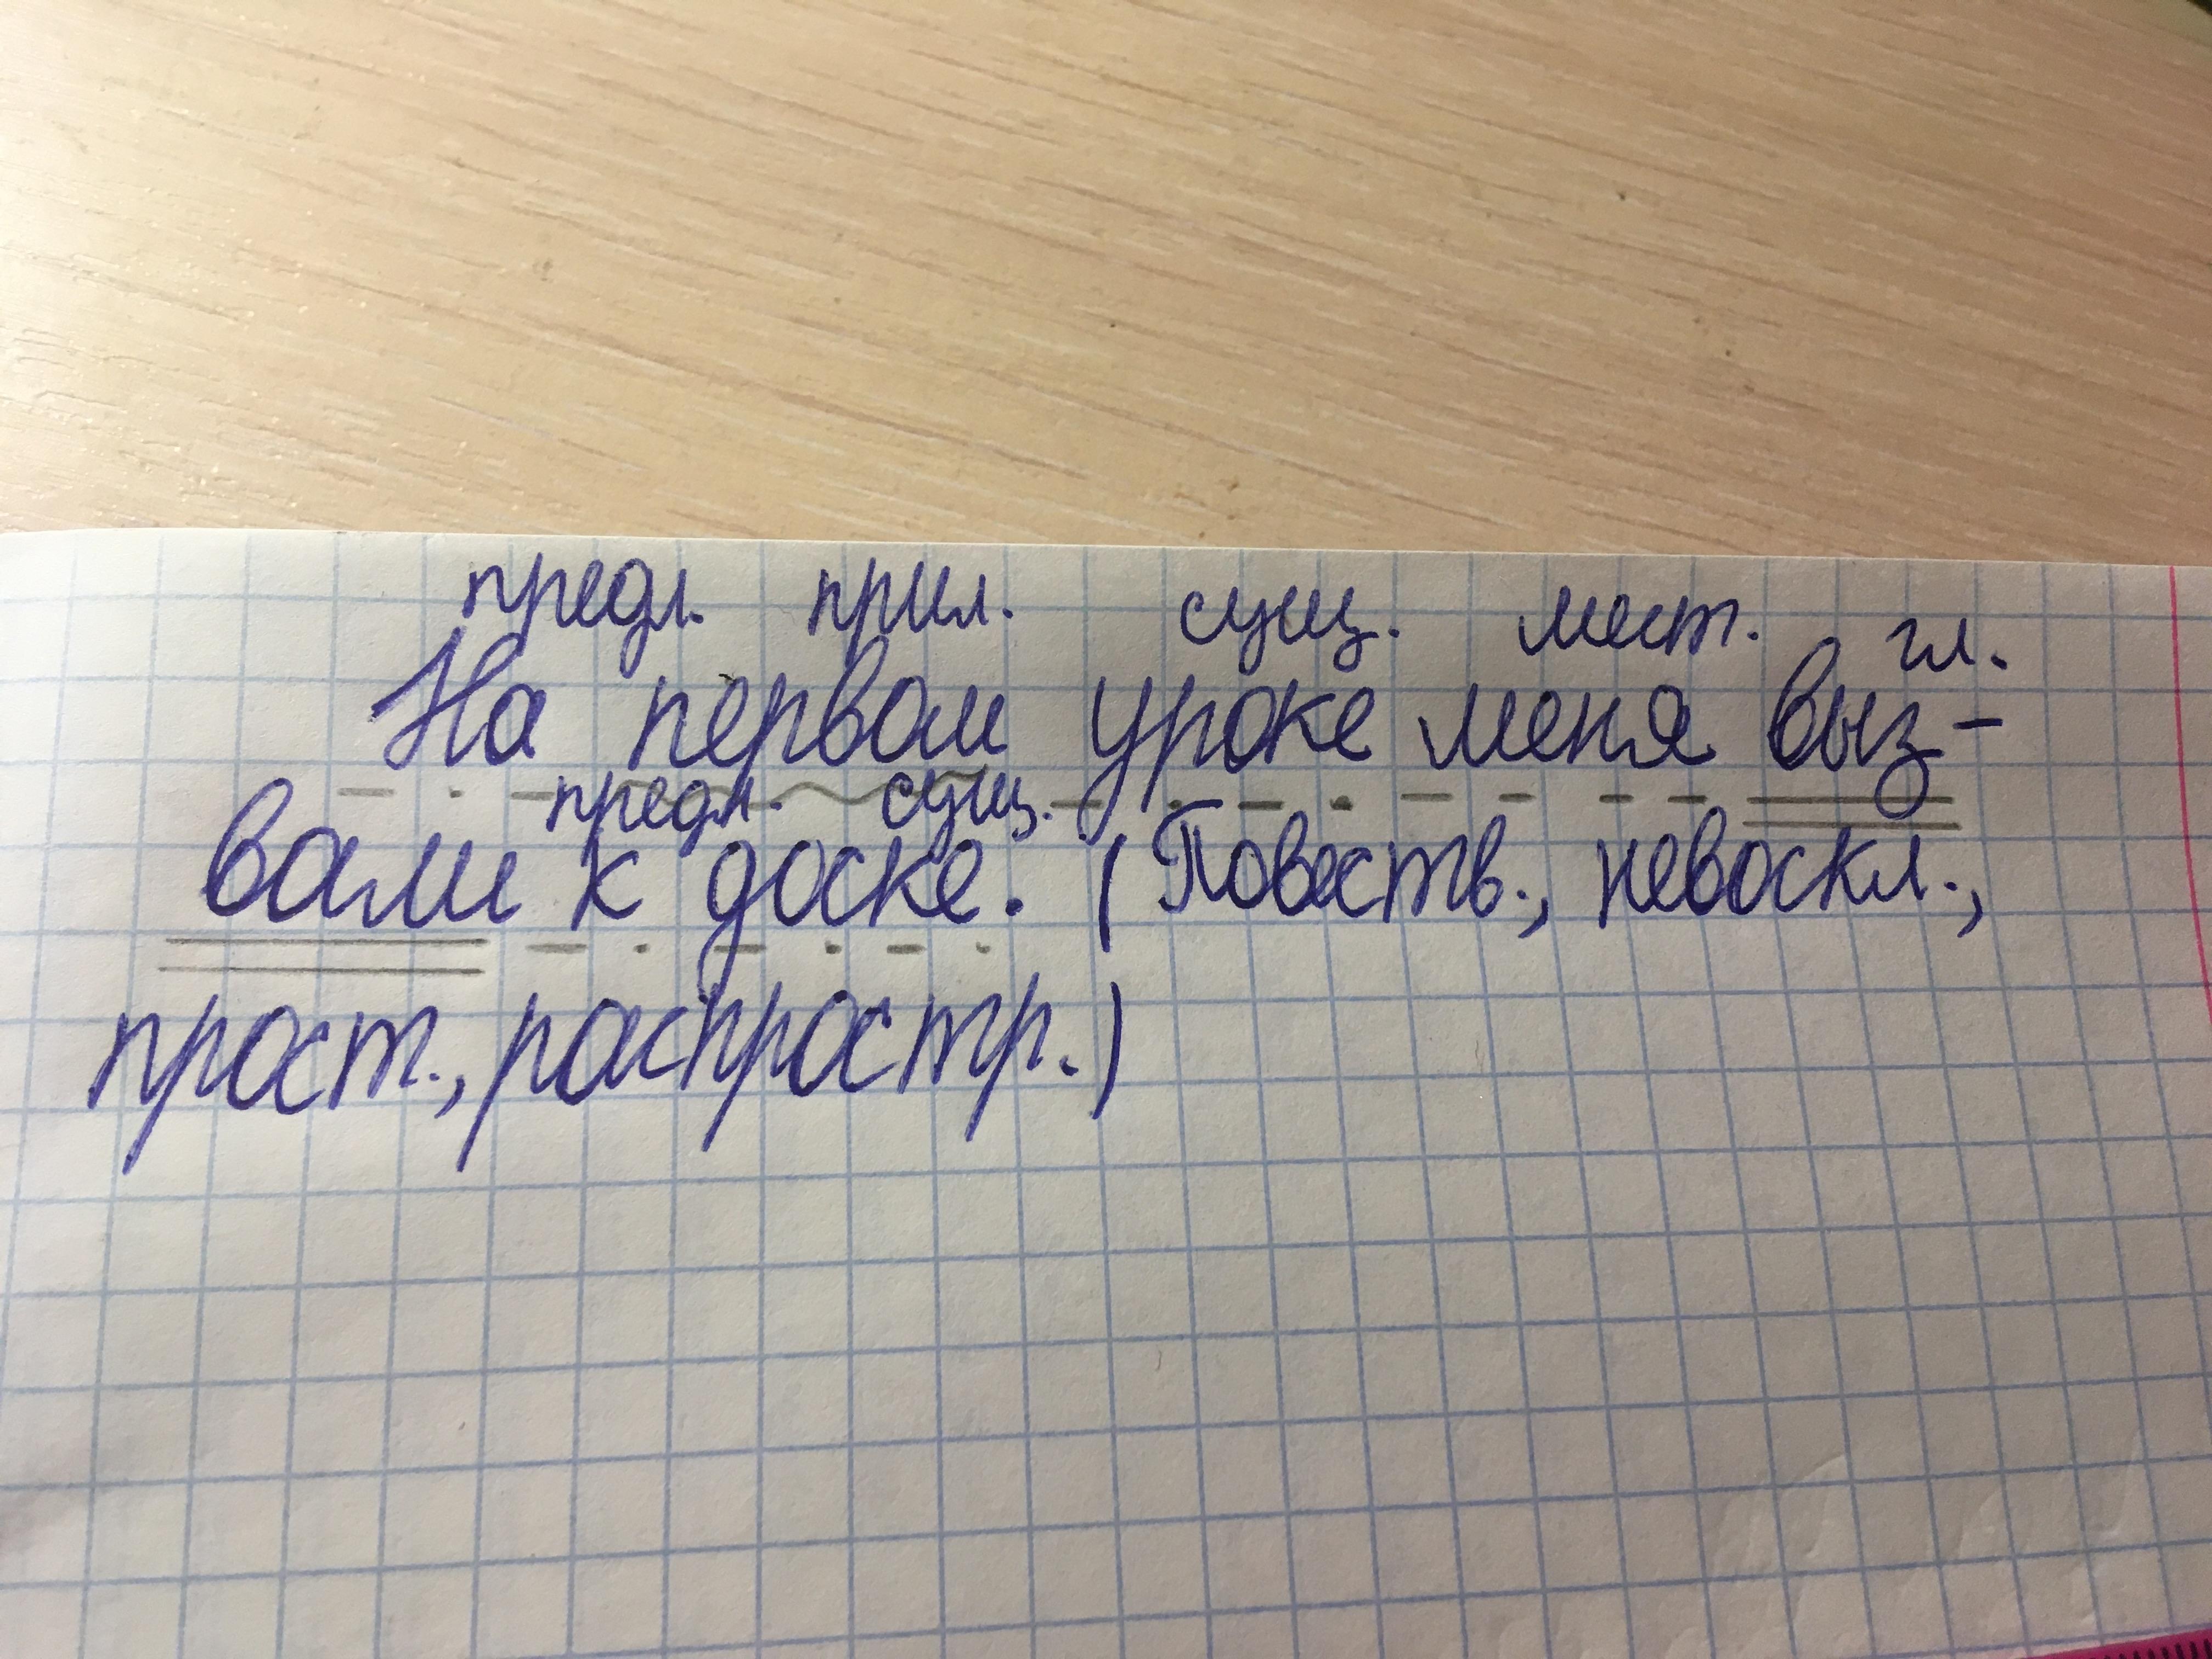 предл. прил. сущ. мест. гл.
На первом уроке меня выз-
предл. сущ.
вали к доске. (Повеств., невоскл.,
прост., распростр.)